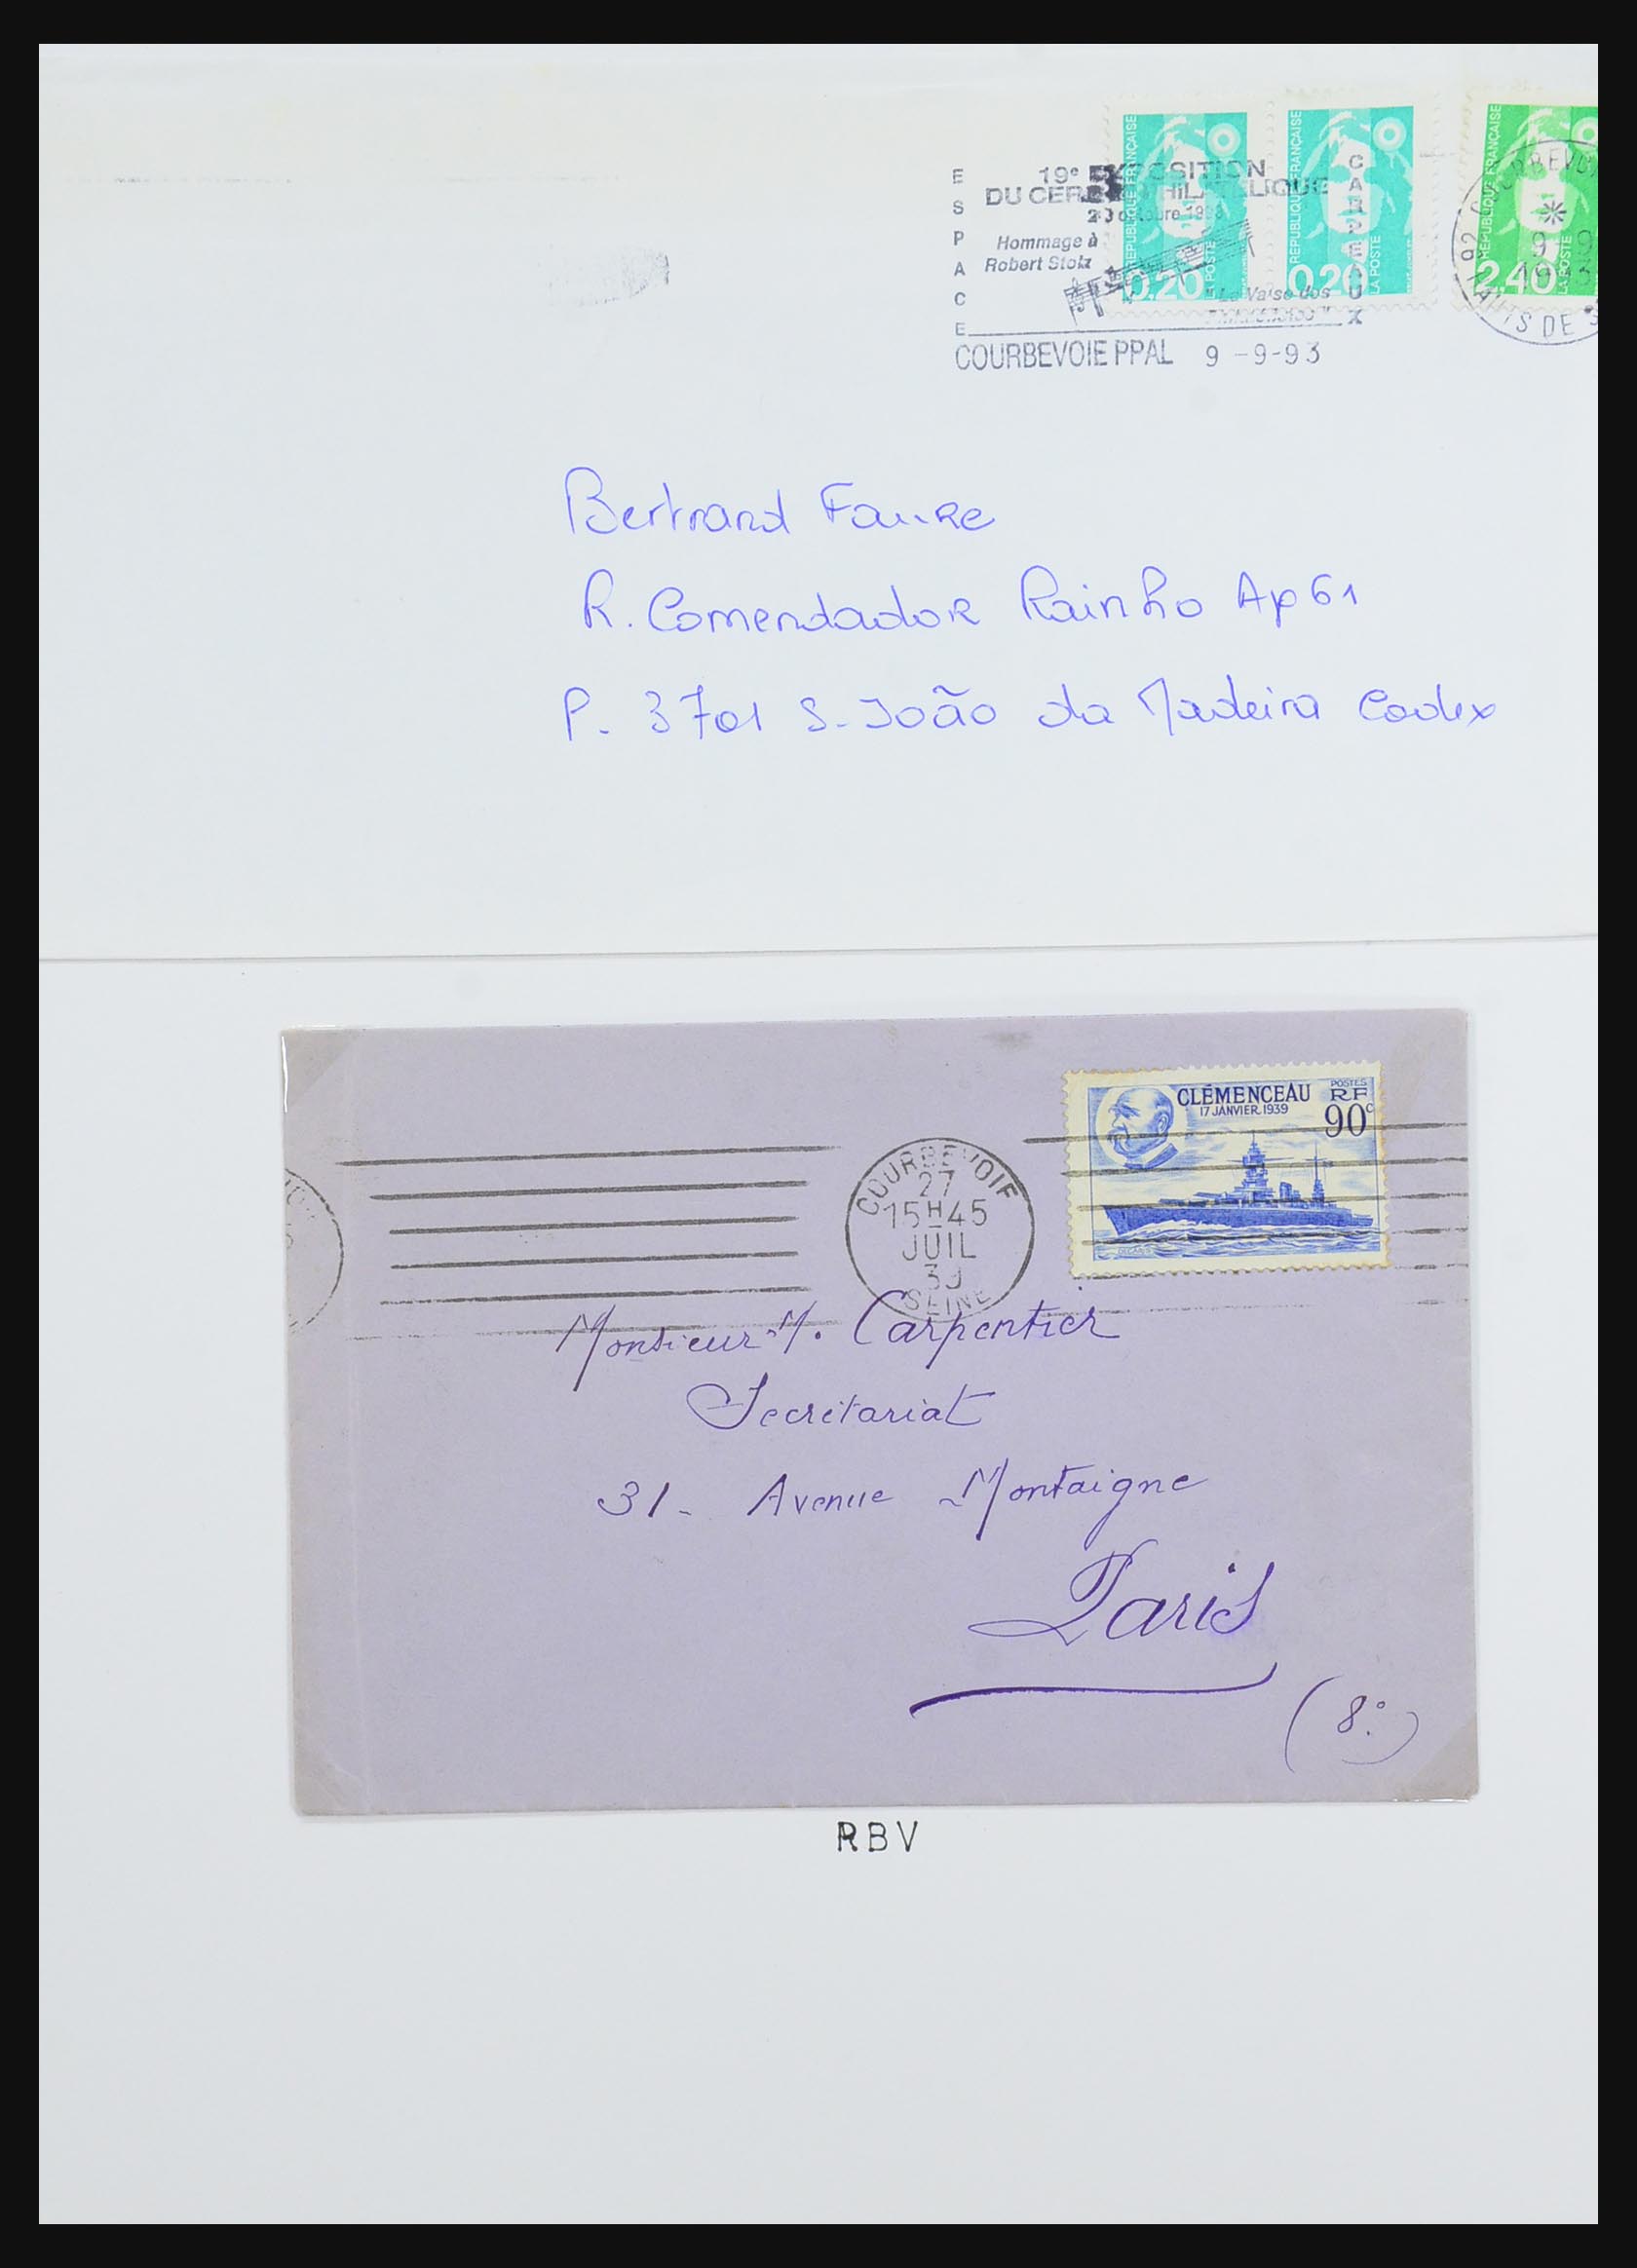 ESPACE
19e EXPOSITION
DU CERCLE PHILATELIQUE
Hommage à
Robert Stolz
"La Valse des
CARPEAUX
COURBEVOIE PPAL 9-9-93
REPUBLIQUE FRANÇAISE
0,20
LA POSTE
REPUBLIQUE FRANÇAISE
0,20
LA POSTE
REPUBLIQUE FRANÇAISE
2,40
LA POSTE
92 COURBEVOI
Bertrand Faure
R. Comendador Rainho Ap 61
P. 3701 S. João da Madeira Codex
CLÉMENCEAU
17 JANVIER 1939
POSTES
RF
90c
COURBEVOIE
27
15H45
JUIL
SEINE
Monsieur M. Carpentier
Secrétariat
31- Avenue Montaigne
Paris
(8°)
RBV